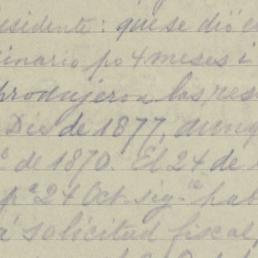 esidente: que se dió e
inario po 4 meses i
produjeron las res
Dic de 1877, aunq
de 1870. El 24 de
pª 24 Oct. sig.te hab
á solicitud fiscal,